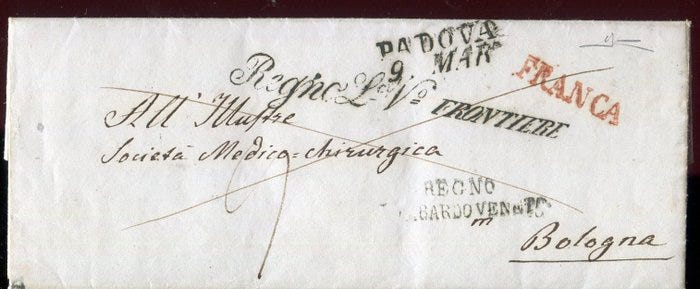 PADOVA
9 MAR
FRANCA
Regno L.º Vº
FRONTIERE
All' Illustre
Società Medico=chirurgica
REGNO
Bologna